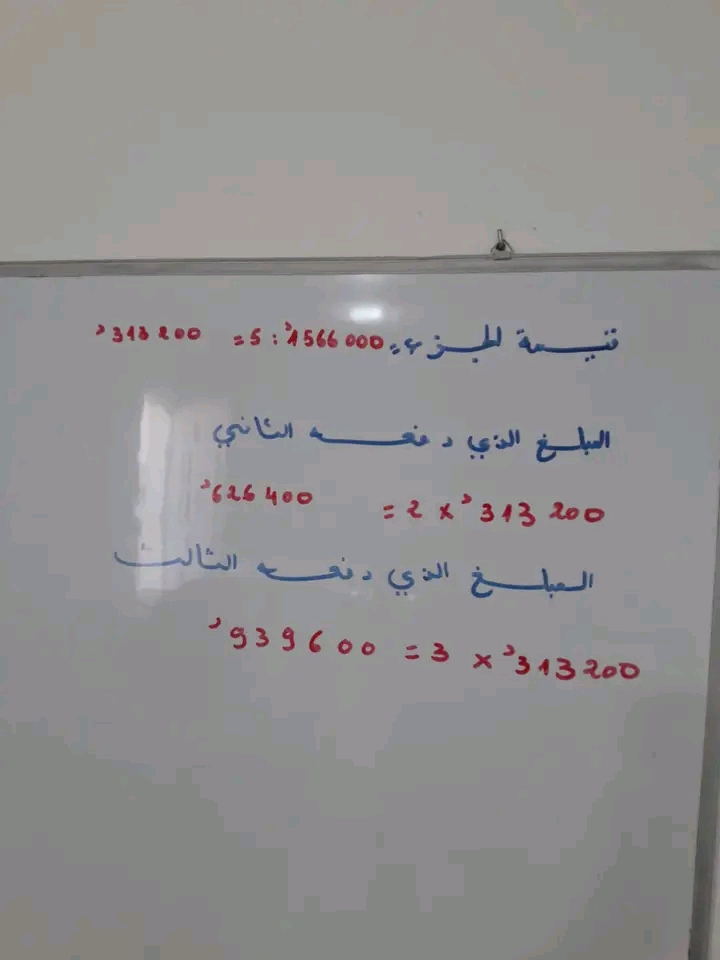 قيمة الجزء = 1566000د : 5 = 313200د
المبلغ الذي دفعه الثاني
313200د × 2 = 626400د
المبلغ الذي دفعه الثالث
313200د × 3 = 939600د